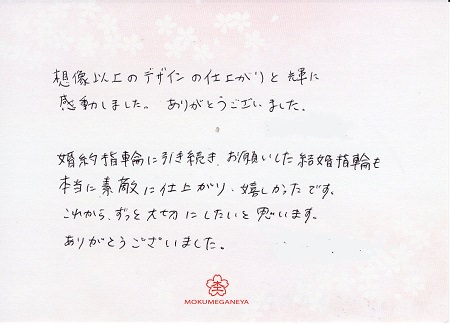 想像以上のデザインの仕上がりと輝に
感動しました。ありがとうございました。
婚約指輪に引き続き、お願いした結婚指輪も
本当に素敵に仕上がり、嬉しかったです。
これから、ずっと大切にしたいと思います。
ありがとうございました。
MOKUMEGANEYA